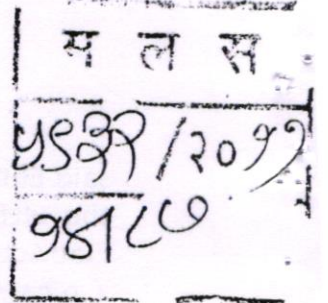 म ल स
५९३२/२०११
१४/८७